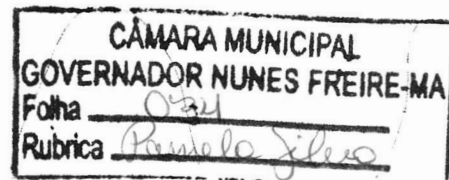 CÂMARA MUNICIPAL
GOVERNADOR NUNES FREIRE-MA
Folha
Rubrica Pamela Silva